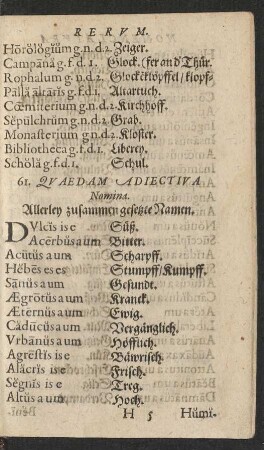 RERVM.
Hōrŏlŏgĭum g.n.d.2. Zeiger.
Campāna g.f.d.1. Glock. (fer an d' Thür.
Rophalum g.n.d.2. Glockklöpffel/klopf-
Pallă altāris g.f.d.1. Altartuch.
Cœmiterium g.n.d.2. Kirchhoff.
Sĕpŭlchrŭm g.n.d.2. Grab.
Monasterium g.n.d.2. Kloster.
Bibliotheca g.f.d.1. Liberey.
Schŏlă g.f.d.1. Schul.
61. QVAEDAM ADIECTIVA
Nomina.
Allerley zusammen gesetzte Namen.
DVlcĭs is e Süß.
Acērbŭs a um Bitter.
Acūtŭs a um Scharpff.
Hĕbĕs es es Stumpff/Kumpff.
Sānŭs a um Gesundt.
Ægrōtŭs a um Kranck.
Æternŭs a um Ewig.
Cădūcŭs a um Vergänglich.
Vrbānŭs a um Höfflich.
Agrēstĭs is e Bäwrisch.
Alăcrĭs is e Frisch.
Sēgnĭs is e Treg.
Altŭs a um Hoch.
H 5 Hŭmĭ-